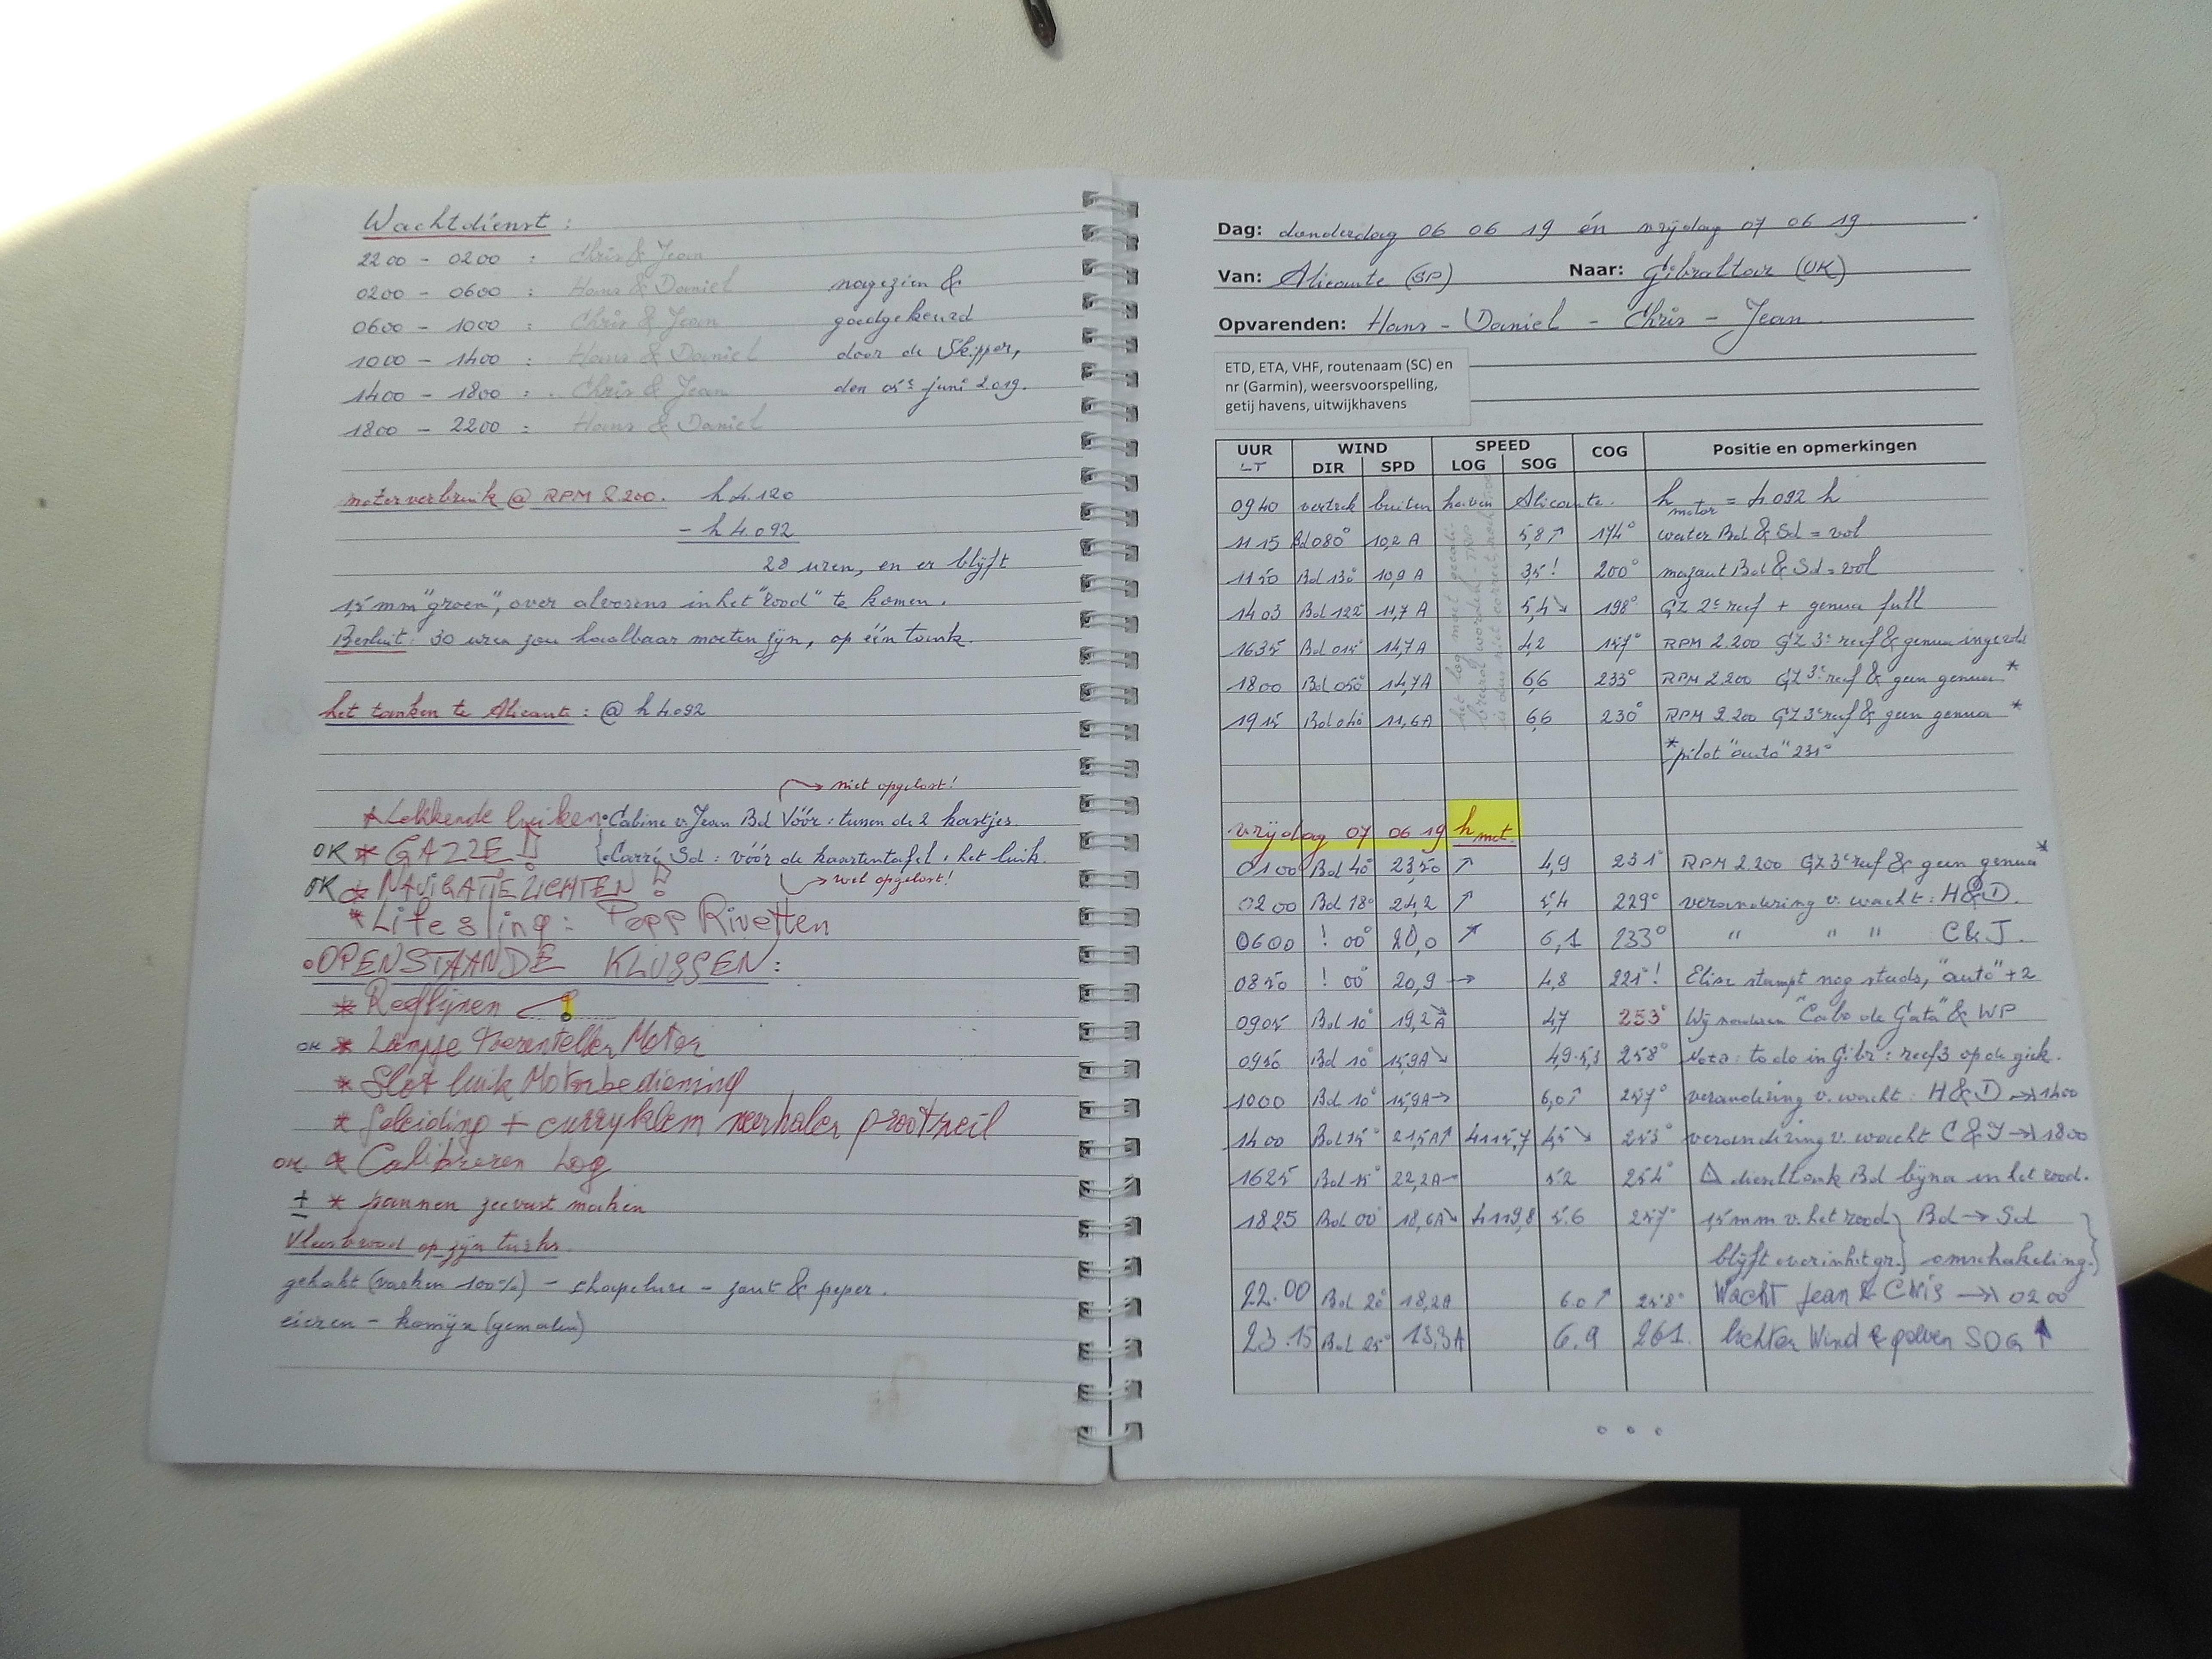 Wachtdienst :
2200 - 0200 : Chris & Jean
0200 - 0600 : Hans & Daniel nagezien &
0600 - 1000 : Chris & Jean goedgekeurd
1000 - 1400 : Hans & Daniel door de Skipper,
1400 - 1800 : Chris & Jean den 05e juni 2019.
1800 - 2200 : Hans & Daniel
motorverbruik @ RPM 2.200. h 4.120
- h 4.092
28 uren, en er blijft
1,5 mm "groen", over alvorens in het "rood" te komen.
Besluit: 30 uren zou haalbaar moeten zijn, op één tank.
het tanken te Alicante : @ h 4.092
→ niet opgelost!
* Lekkende luiken • Cabine v. Jean Bd Vóór : tussen de 2 kastjes
OK * GAZZE! • Carré Sd : vóór de kaartentafel : het luik.
OK * NAVIGATIEZICHTEN ! → wel opgelost!
* Life sling : Popp Rivetten
• OPENSTAANDE KLUSSEN :
* Reeflijnen
OK * Lampje toerenteller Motor
* Slot luik Motorbediening
* Geleiding + curryklem neerhaler grootzeil
OK * Calibreren Log
± * pannen zeevast maken
Vleesbrood op zijn turks.
gehakt (varken 100%) - chapelure - zout & peper.
eieren - komijn (gemalen)
Dag: donderdag 06 06 19 én vrijdag 07 06 19
Van: Alicante (SP) Naar: Gibraltar (UK)
Opvarenden: Hans - Daniel - Chris - Jean
ETD, ETA, VHF, routenaam (SC) en
nr (Garmin), weersvoorspelling,
getij havens, uitwijkhavens
UUR WIND SPEED COG Positie en opmerkingen
LT DIR SPD LOG SOG
0940 vertrek buiten haven Alicante. h motor = 4092 h
1115 Bd 080° 10,2 A 5,8 ↗ 174° water Bd & Sd = vol
1150 Bd 130° 10,9 A 3,5! 200° mazout Bd & Sd = vol
1403 Bd 122° 11,7 A 5,4 ↘ 198° GZ 2e reef + genua full
1635 Bd 015° 14,7 A 4,2 157° RPM 2.200 GZ 3e reef & genua ingerold
1800 Bd 050° 14,7 A 6,6 233° RPM 2.200 GZ 3e reef & geen genua *
1915 Bd 040° 11,6 A 6,6 230° RPM 2.200 GZ 3e reef & geen genua *
* pilot "auto" 231°
vrijdag 07 06 19 h mot.
0100 Bd 40° 23,50 ↗ 4,9 231° RPM 2.200 GZ 3e reef & geen genua *
0200 Bd 18° 24,2 ↗ 5,4 229° verandering v. wacht : H&D.
0600 ! 00° 20,0 ↗ 6,1 233° " " " C & J.
0850 ! 00° 20,9 → 4,8 221°! Elise stampt nog steeds, "auto" + 2
0905 Bd 10° 19,2 A ↘ 4,7 253° Wij ronden "Cabo de Gata" & WP
0950 Bd 10° 15,9 A ↘ 4,9-5,3 258° Nota : to do in Gibr : reef 3 op de giek.
1000 Bd 10° 15,9 A → 6,0 ↗ 257° verandering v. wacht : H & D → 1400
1400 Bd 15° 21,5 A ↗ 4115,7 4,5 ↘ 253° verandering v. wacht C & J → 1800
1625 Bd 15° 22,2 A → 5.2 254° △ dieseltank Bd bijna in het rood.
1825 Bd 00° 18,6 A ↘ 4119,8 5.6 257° 1,5 mm v. het rood } Bd → Sd
blijft over in het gr. } omschakeling.
22.00 Bd 20° 18,2 A 6.0 ↗ 258° Wacht Jean & Chris → 0200
23.15 Bd 25° 13,3 A 6.9 261. lichter Wind & golven SOG ↑